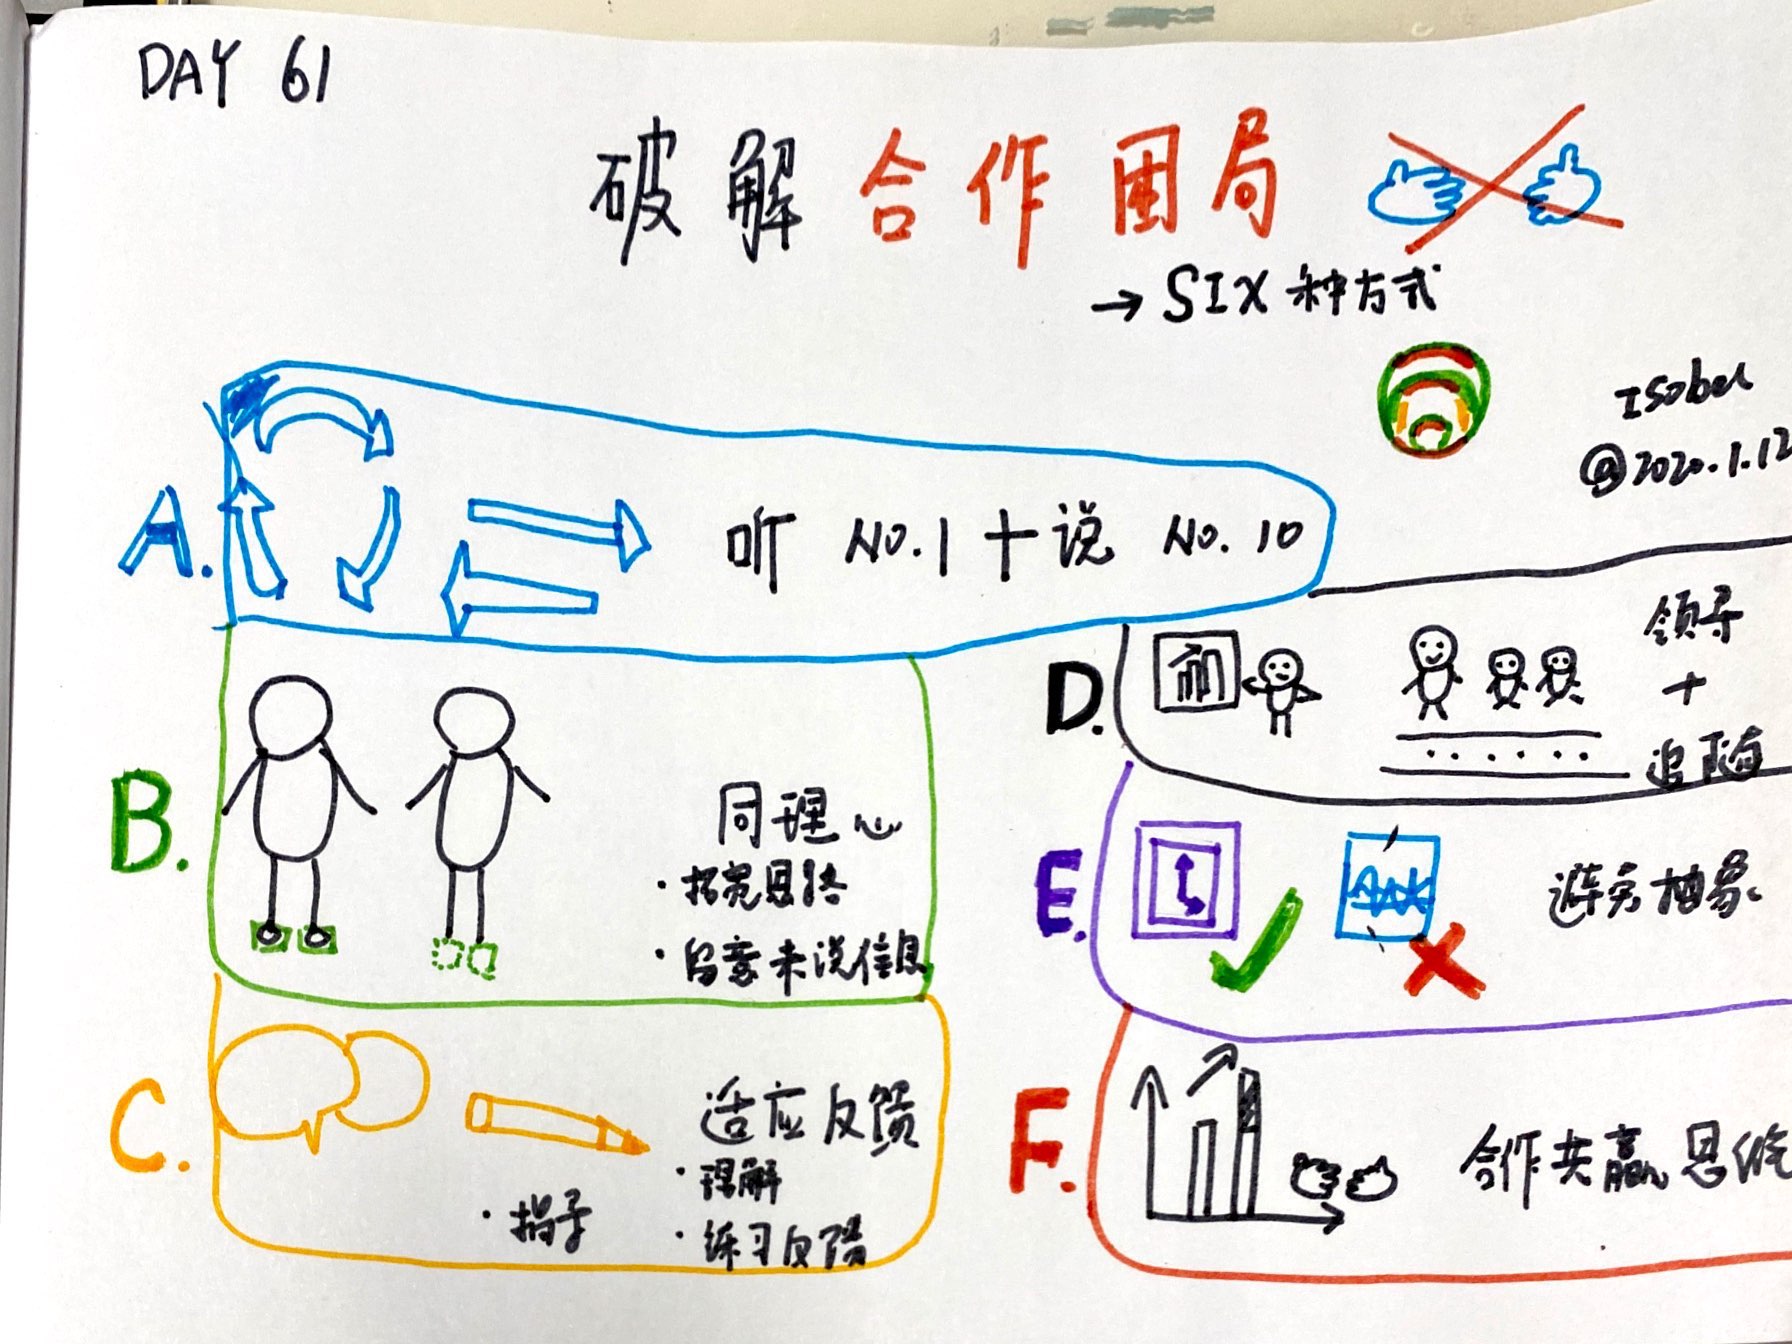 DAY 61
破解合作困局
→ SIX 种方式
Isobel
@2020.1.12
A.
听 NO.1 + 说 NO. 10
B.
同理心
· 拓宽思路
· 留意未说信息
C.
适应反馈
· 理解
· 练习反馈
D.
领导
+
追随
E.
避免抽象
F.
合作共赢思维